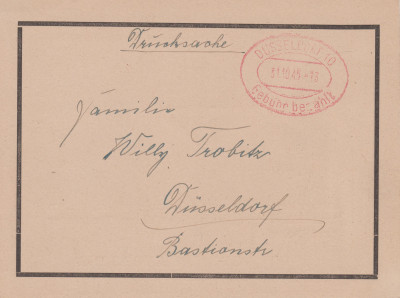 Drucksache
DÜSSELDORF 10
31.10.45-18
Gebühr bezahlt
Familie
Willy Trobitz
Düsseldorf
Bastionstr.